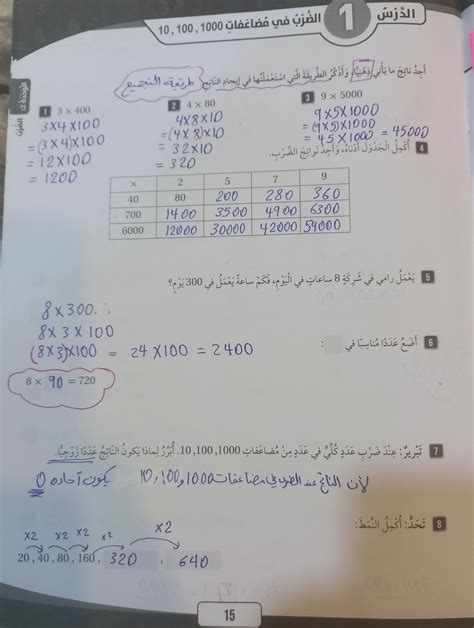 الدَّرْسُ 1 الضَّرْبُ في مُضاعَفاتِ 10, 100, 1000
الوَحْدَةُ 2: الضَّرْبُ
أَجِدُ ناتِجَ ما يَأْتي ذِهْنِيًّا، وَأَذْكُرُ الطَّريقَةَ الَّتي اسْتَعْمَلْتُها في إيجادِ النّاتِجِ: طريقة التجميع
1 3 × 400
3×4×100
=(3×4)×100
= 12×100
= 1200
2 4 × 80
4×8×10
=(4×8)×10
= 32×10
= 320
3 9 × 5000
9×5×1000
=(9×5)×1000
= 45×1000 = 45000
4 أُكْمِلُ الْجَدْوَلَ أَدْناهُ، وَأَجِدُ نَواتِجَ الضَّرْبِ.
× 2 5 7 9
40 80 200 280 360
700 1400 3500 4900 6300
6000 12000 30000 42000 54000
5 يَعْمَلُ رامي في شَرِكَةٍ 8 ساعاتٍ في الْيَوْمِ، فَكَمْ ساعَةً يَعْمَلُ في 300 يَوْمٍ؟
8×300.
8×3×100
(8×3)×100 = 24×100 = 2400
6 أَضَعُ عَدَدًا مُناسِبًا في
8 × 90 = 720
7 تَبْريرٌ: عِنْدَ ضَرْبِ عَدَدٍ كُلِّيٍّ في عَدَدٍ مِنْ مُضاعَفاتِ 10, 100, 1000. أُبَرِّرُ لِماذا يَكونُ النّاتِجُ عَدَدًا زَوْجِيًّا.
لأن الناتج عند الضرب في مضاعفات 10,100و1000 يكون آحاده 0
8 تَحَدٍّ: أُكْمِلُ النَّمَطَ:
×2 ×2 ×2 ×2 ×2
20, 40, 80, 160, 320, 640
15